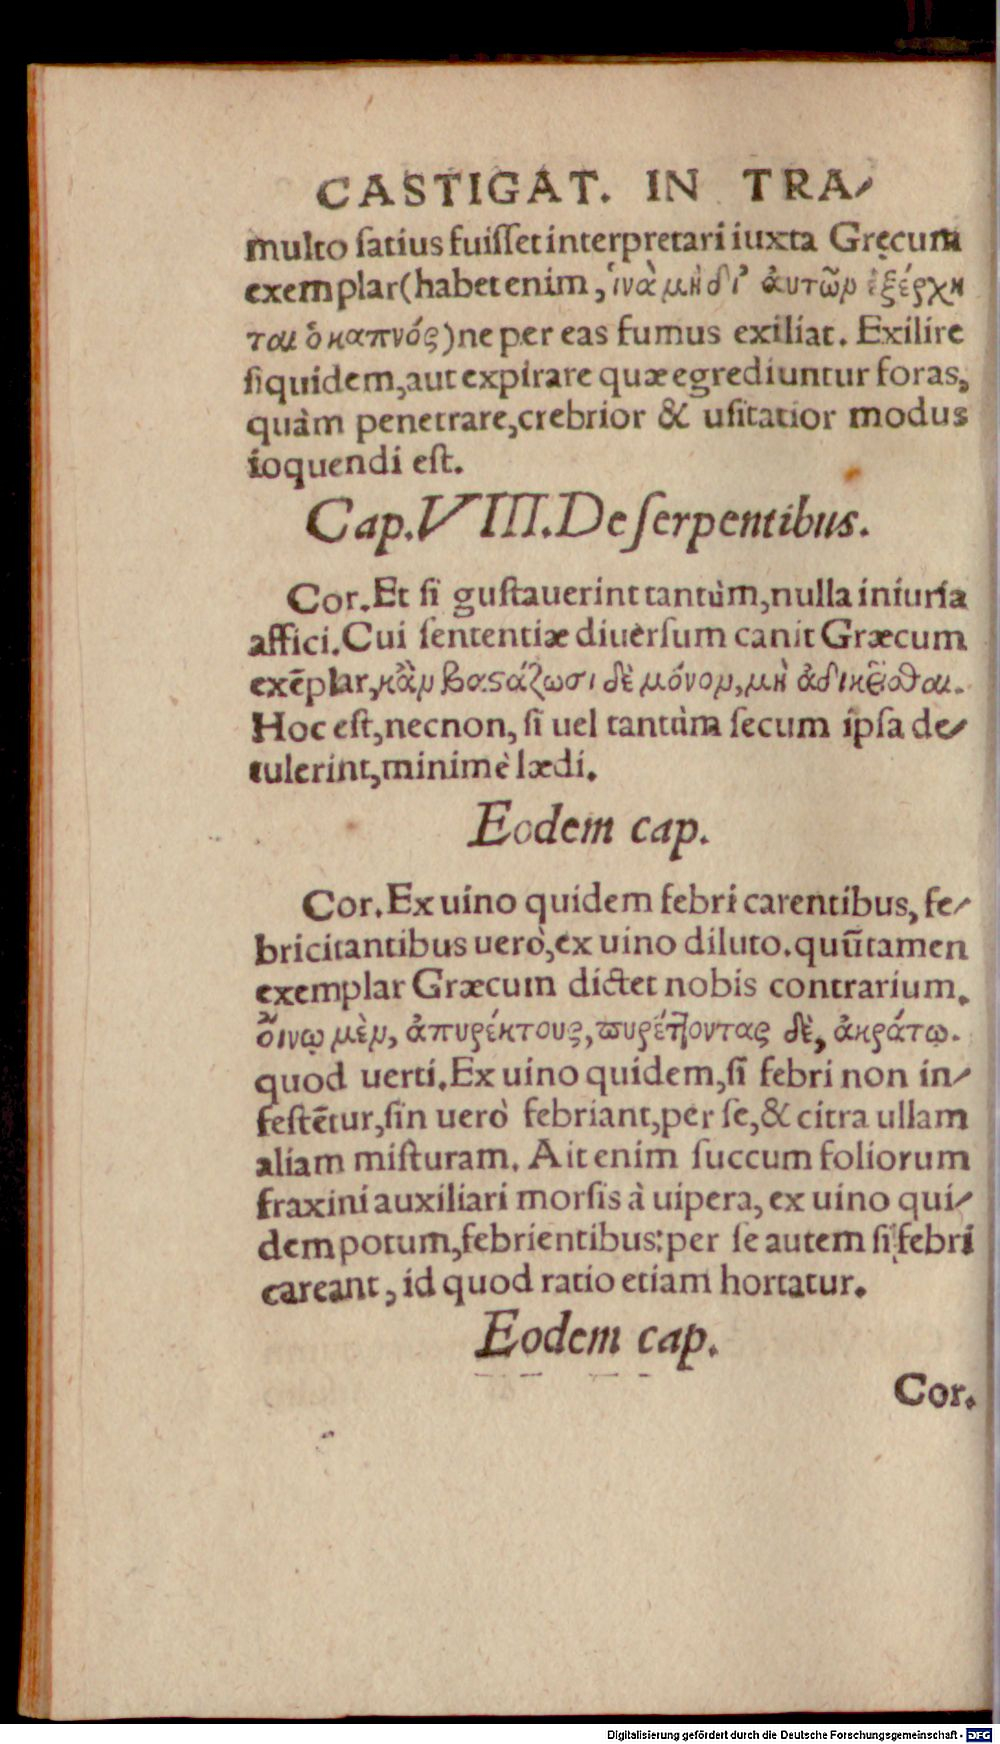 CASTIGAT. IN TRA-
multo ſatius fuiſſet interpretari iuxta Gręcum
exemplar (habet enim, ἱνὰ μὴ δι᾽ ἀυτῶν ἐξέρχη
ται ὁ καπνός) ne per eas fumus exiliat. Exilire
ſiquidem, aut expirare quæ egrediuntur foras,
quàm penetrare, crebrior & uſitatior modus
loquendi eſt.
Cap. VIII. De ſerpentibus.
Cor. Et ſi guſtauerint tantùm, nulla iniuria
affici. Cui ſententiæ diuerſum canit Græcum
exēplar, κἂν βαϛάζωσι δὲ μόνον, μὴ ἀδικεῖσθαι.
Hoc eſt, necnon, ſi uel tantùm ſecum ipſa de-
tulerint, minimè lædi.
Eodem cap.
Cor. Ex uino quidem febri carentibus, fe-
bricitantibus uerò, ex uino diluto. quū tamen
exemplar Græcum dictet nobis contrarium.
ὄινῳ μὲν, ἀπυρέκτους, πυρέτΊοντας δὲ, ἀκράτῳ.
quod uerti. Ex uino quidem, ſi febri non in-
feſtētur, ſin uerò febriant, per ſe, & citra ullam
aliam miſturam. Ait enim ſuccum foliorum
fraxini auxiliari morſis à uipera, ex uino qui-
dem potum, febrientibus: per ſe autem ſi febri
careant, id quod ratio etiam hortatur.
Eodem cap.
Cor.
Digitalisierung gefördert durch die Deutsche Forschungsgemeinschaft - DFG